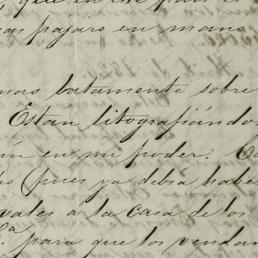 que en ese pais es
mas pajaro en mano
mas latamente sobre
Están litografiándos
án en mi poder.
to (pues ya debia habe
vales a la casa de los
para que los vendan